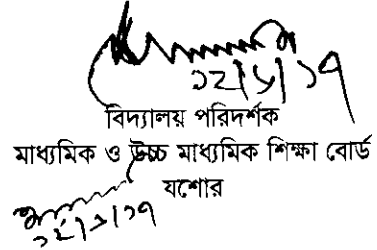 ১২/৬/১৭
বিদ্যালয় পরিদর্শক
মাধ্যমিক ও উচ্চ মাধ্যমিক শিক্ষা বোর্ড
যশোর